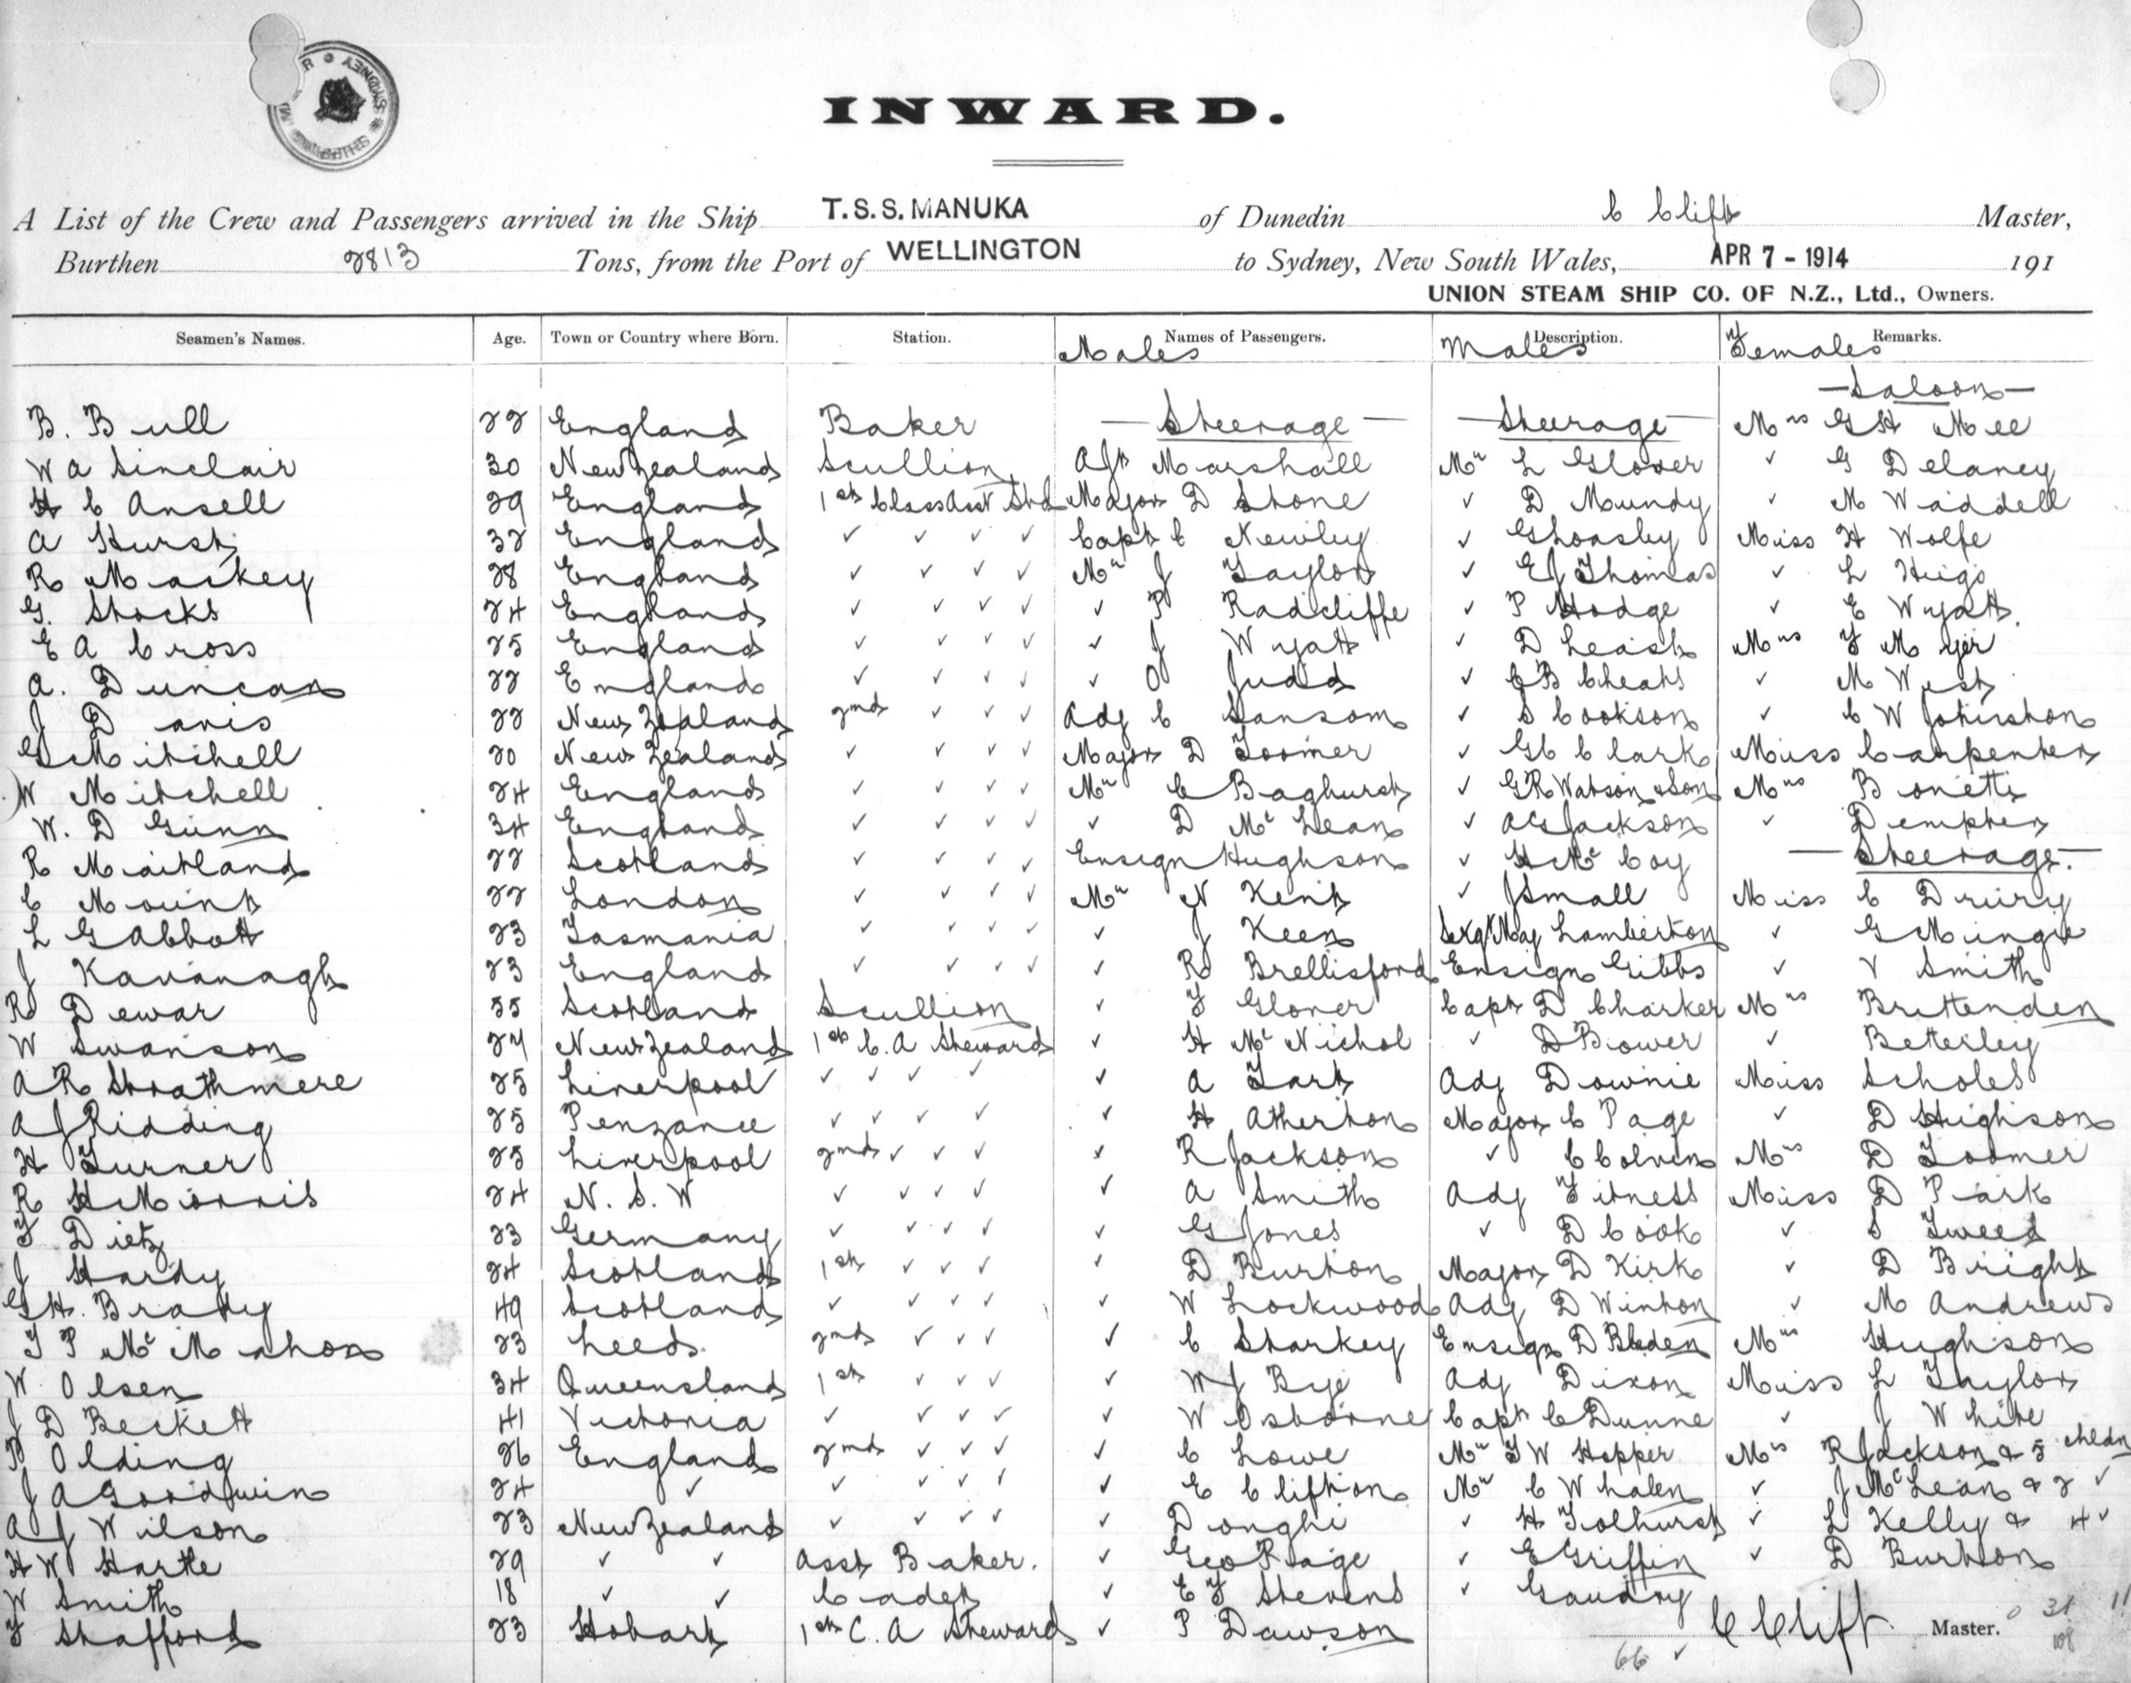 INWARD.
A List of the Crew and Passengers arrived in the Ship T.S.S. MANUKA of Dunedin C Clift Master,
Burthen 2813 Tons, from the Port of WELLINGTON to Sydney, New South Wales, APR 7 - 1914 191
UNION STEAM SHIP CO. OF N.Z., Ltd., Owners.
Seamen's Names. Age. Town or Country where Born. Station. Names of Passengers. Description. Remarks.
Males Males Females
— Saloon —
B. Bull 22 England Baker — Steerage — — Steerage — Mrs G H Mee
W A Sinclair 30 New Zealand Scullion Adjt Marshall Mr L Glover ✓ G Delaney
H C Ansell 29 England 1st Class Asst Std Major D Stone ✓ D Mundy ✓ M Waddell
A Hurst 32 England ✓ ✓ ✓ ✓ Capt C Newby ✓ G Hoasby Miss H Wolfe
R Mackey 28 England ✓ ✓ ✓ ✓ Mr J Taylor ✓ E J Thomas ✓ L Hugo
G. Stocks 24 England ✓ ✓ ✓ ✓ ✓ P Radcliffe ✓ P Hodge ✓ E Wyatt.
E A Cross 25 England ✓ ✓ ✓ ✓ ✓ J Wyatt ✓ D Leask Mrs F Myer
A. Duncan 22 England ✓ ✓ ✓ ✓ ✓ O Judd ✓ C B Cheats ✓ M West
J Davis 22 New Zealand 2nd ✓ ✓ ✓ Adj C Sansom ✓ S Cookson ✓ C W Johnston
G Mitchell 20 New Zealand ✓ ✓ ✓ ✓ Major D Toomer ✓ G C Clark Miss Carpenter
W Mitchell 24 England ✓ ✓ ✓ ✓ Mr C Baghurst ✓ G R Watson & Son Mrs Bonetti
W. D Gunn 34 England ✓ ✓ ✓ ✓ ✓ D McLean ✓ A G Jackson ✓ Dempter
R Maitland 22 Scotland ✓ ✓ ✓ ✓ Ensign Hughson ✓ H McCoy — Steerage. —
C Mount 22 London ✓ ✓ ✓ ✓ Mr N Kent ✓ J Small Miss C Drury
L G Abbott 23 Tasmania ✓ ✓ ✓ ✓ ✓ J Keen Sergt Maj Lamberton ✓ G Mingie
J Kavanagh 23 England ✓ ✓ ✓ ✓ ✓ R Brellisford Ensign Gibbs ✓ V Smith
R Dewar 55 Scotland Scullion ✓ F Glover Capt D Charker Mrs Brittenden
W Swanson 24 New Zealand 1st C. A Steward ✓ H McNichol ✓ D Bower ✓ Betterley
A R Strathmere 25 Liverpool ✓ ✓ ✓ ✓ ✓ A Tart Adj Downie Miss Scholes
A J Ridding 25 Penzance ✓ ✓ ✓ ✓ ✓ H Atherton Major C Page ✓ D Hughson
H Turner 25 Liverpool 2nd ✓ ✓ ✓ ✓ R Jackson ✓ C Colven Mrs D Toomer
R H Morris 24 N. S. W ✓ ✓ ✓ ✓ ✓ A Smith Adj Fitness Miss D Park
F Dietz 23 Germany ✓ ✓ ✓ ✓ ✓ G Jones ✓ D Cook ✓ S Tweed
J Hardy 24 Scotland 1st ✓ ✓ ✓ ✓ D Burton Major D Kirk ✓ D Bright
G H. Brady 49 Scotland ✓ ✓ ✓ ✓ ✓ W Lockwood Adj D Winton ✓ M Andrews
T P McMahon 23 Leeds. 2nd ✓ ✓ ✓ ✓ C Starkey Ensign D Bladen Mrs Hughson
W Olsen 34 Queensland 1st ✓ ✓ ✓ ✓ W J Bye Adj Dixon Miss L Taylor
J D Beckett 41 Victoria ✓ ✓ ✓ ✓ ✓ W Osborne Capt C Dunne ✓ J White
B Olding 26 England 2nd ✓ ✓ ✓ ✓ C Lowe Mr F W Hopper Mrs R Jackson & 5 chldn
J A Goodwin 24 ✓ ✓ ✓ ✓ ✓ ✓ E Clifton Mr C Whalen ✓ J McLean & 2 ✓
A J Wilson 23 New Zealand ✓ ✓ ✓ ✓ ✓ Donghi ✓ H Tolhurst ✓ L Kelly & 4 ✓
H W Hartle 29 ✓ ✓ Asst Baker. ✓ Geo Paige ✓ E Griffin ✓ D Burton
W Smith 18 ✓ ✓ Cadet ✓ E F Stevens ✓ Gaudry
F Stafford 23 Hobart 1st C. A Steward ✓ P Dawson C Clift Master.
31
11
108
66 ✓